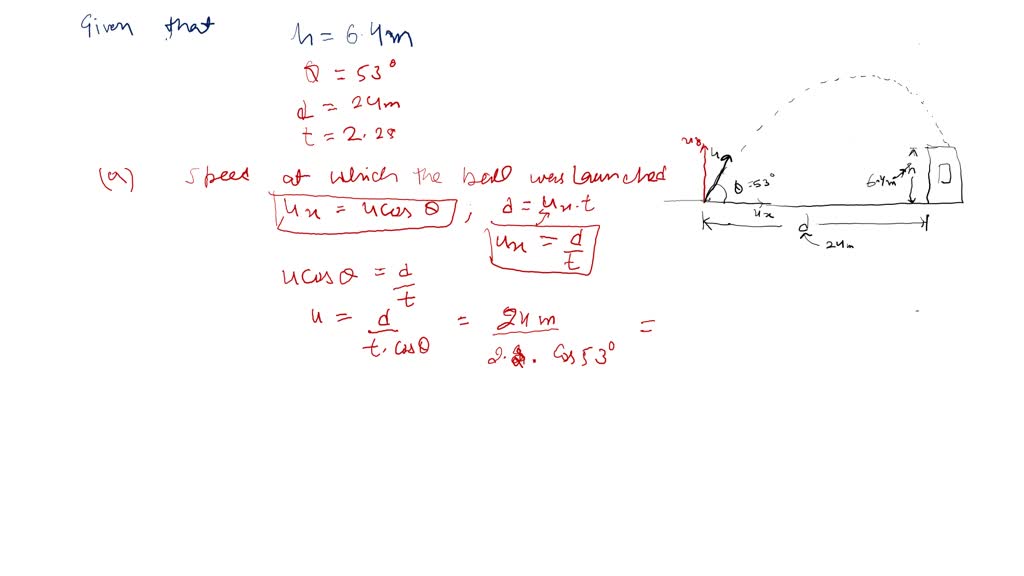 Given that h = 6.4m
θ = 53°
d = 24m
t = 2.2s
(a) Speed at which the ball was launched
ux = u cos θ ; d = ux.t
ux = d/t
u cos θ = d/t
u = d/t.cosθ = 24m/2.2. Cos 53° =
u
θ = 53°
ux
6.4m
h
d
24m